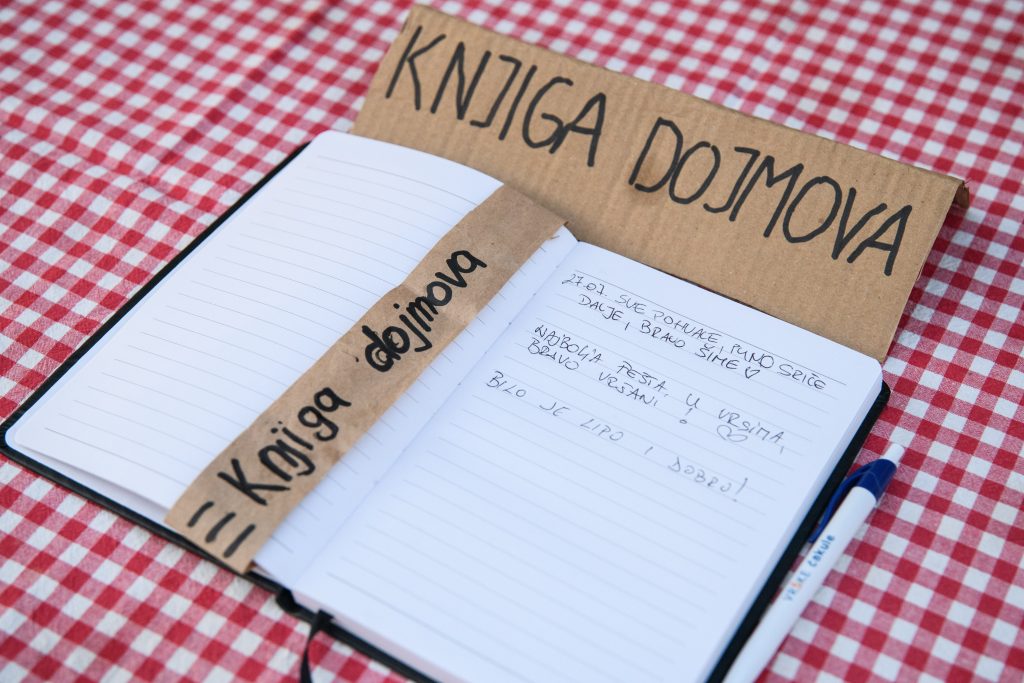 KNJIGA DOJMOVA
Knjiga dojmova
27.07. SVE POHVALE I PUNO SRIĆE
DALJE I BRAVO ŠIME ♡
NAJBOLJA FEŠTA U VRSIMA,
BRAVO VRŠANI ! ♡
BILO JE LIPO I DOBRO!
VRŠKE ćakule